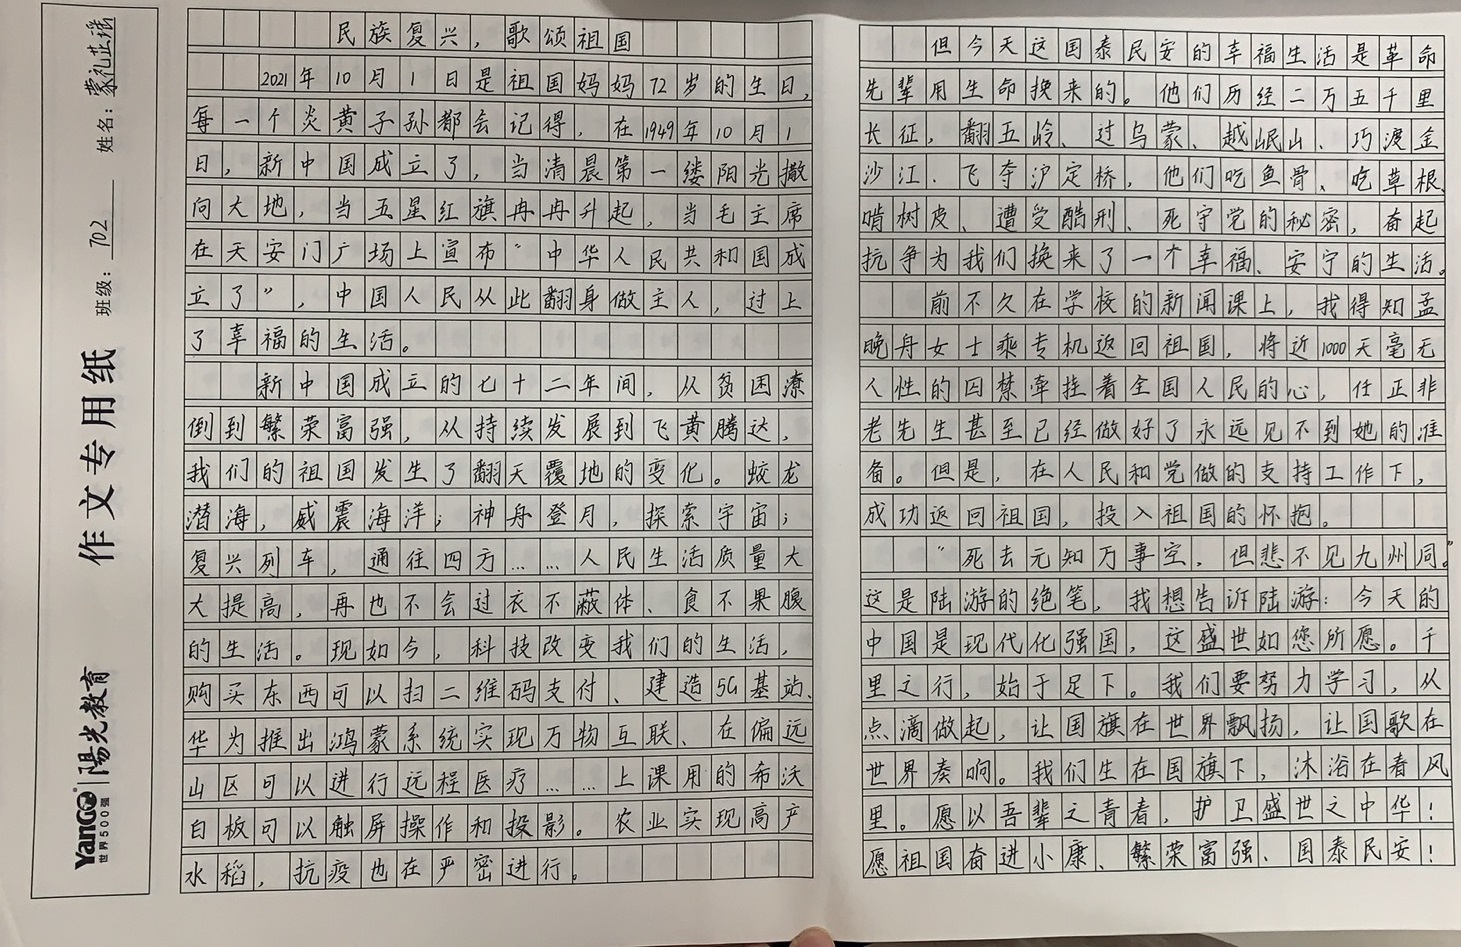 民族复兴，歌颂祖国
2021年10月1日是祖国妈妈72岁的生日，
每一个炎黄子孙都会记得，在1949年10月1
日，新中国成立了，当清晨第一缕阳光撒
向大地，当五星红旗冉冉升起，当毛主席
在天安门广场上宣布“中华人民共和国成
立了”，中国人民从此翻身做主人，过上
了幸福的生活。
新中国成立的七十二年间，从贫困潦
倒到繁荣富强，从持续发展到飞黄腾达，
我们的祖国发生了翻天覆地的变化。蛟龙
潜海，威震海洋；神舟登月，探索宇宙；
复兴列车，通往四方……人民生活质量大
大提高，再也不会过衣不蔽体、食不果腹
的生活。现如今，科技改变我们的生活，
购买东西可以扫二维码支付、建造5G基站、
华为推出鸿蒙系统实现万物互联、在偏远
山区可以进行远程医疗……上课用的希沃
白板可以触屏操作和投影。农业实现高产
水稻，抗疫也在严密进行。
但今天这国泰民安的幸福生活是革命
先辈用生命换来的。他们历经二万五千里
长征，翻五岭、过乌蒙、越岷山、巧渡金
沙江、飞夺泸定桥，他们吃鱼骨、吃草根、
啃树皮、遭受酷刑、死守党的秘密，奋起
抗争为我们换来了一个幸福、安宁的生活。
前不久在学校的新闻课上，我得知孟
晚舟女士乘专机返回祖国，将近1000天毫无
人性的囚禁牵挂着全国人民的心，任正非
老先生甚至已经做好了永远见不到她的准
备。但是，在人民和党做的支持工作下，
成功返回祖国，投入祖国的怀抱。
“死去元知万事空，但悲不见九州同。”
这是陆游的绝笔，我想告诉陆游：今天的
中国是现代化强国，这盛世如您所愿。千
里之行，始于足下。我们要努力学习，从
点滴做起，让国旗在世界飘扬，让国歌在
世界奏响。我们生在国旗下，沐浴在春风
里。愿以吾辈之青春，护卫盛世之中华！
愿祖国奋进小康、繁荣富强、国泰民安！
YanGo 世界500强 陽光教育
作文专用纸
班级：702 姓名：蒙礼芷瑶